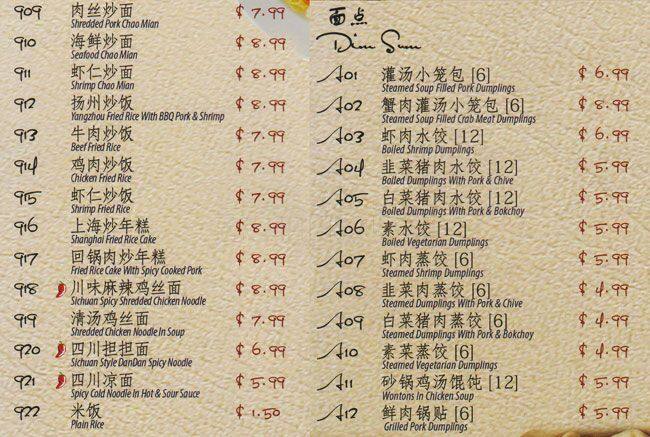 909 肉丝炒面 $ 7.99
Shredded Pork Chao Mian
910 海鲜炒面 $ 8.99
Seafood Chao Mian
911 虾仁炒面 $ 8.99
Shrimp Chao Mian
912 扬州炒饭 $ 8.99
Yangzhou Fried Rice With BBQ Pork & Shrimp
913 牛肉炒饭 $ 7.99
Beef Fried Rice
914 鸡肉炒饭 $ 7.99
Chicken Fried Rice
915 虾仁炒饭 $ 7.99
Shrimp Fried Rice
916 上海炒年糕 $ 8.99
Shanghai Fried Rice Cake
917 回锅肉炒年糕 $ 8.99
Fried Rice Cake With Spicy Cooked Pork
918 川味麻辣鸡丝面 $ 8.99
Sichuan Spicy Shredded Chicken Noodle
919 清汤鸡丝面 $ 7.99
Shredded Chicken Noodle In Soup
920 四川担担面 $ 6.99
Sichuan Style DanDan Spicy Noodle
921 四川凉面 $ 5.99
Spicy Cold Noodle In Hot & Sour Sauce
922 米饭 $ 1.50
Plain Rice
面点
Dim Sum
A01 灌汤小笼包 [6] $ 6.99
Steamed Soup Filled Pork Dumplings
A02 蟹肉灌汤小笼包 [6] $ 8.99
Steamed Soup Filled Crab Meat Dumplings
A03 虾肉水饺 [12] $ 6.99
Boiled Shrimp Dumplings
A04 韭菜猪肉水饺 [12] $ 5.99
Boiled Dumplings With Pork & Chive
A05 白菜猪肉水饺 [12] $ 5.99
Boiled Dumplings With Pork & Bokchoy
A06 素水饺 [12] $ 5.99
Boiled Vegetarian Dumplings
A07 虾肉蒸饺 [6] $ 5.99
Steamed Shrimp Dumplings
A08 韭菜肉蒸饺 [6] $ 4.99
Steamed Dumplings With Pork & Chive
A09 白菜猪肉蒸饺 [6] $ 4.99
Steamed Dumplings With Pork & Bokchoy
A10 素菜蒸饺 [6] $ 5.99
Steamed Vegetarian Dumplings
A11 砂锅鸡汤馄饨 [12] $ 5.99
Wontons In Chicken Soup
A12 鲜肉锅贴 [6] $ 5.99
Grilled Pork Dumplings